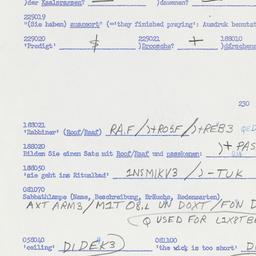 )der Kaalsrassen? )dawenen?
225019
"(Sie haben) ausgeort" (='they finished praying': Ausdruk benutst
229020 225021 188010
'Predigt' $ )Droosche? + )ddrochene
230
188021
'Rabbiner' (Roof/Raaf) RA.F/)+ROSF/)+REB3
188020
Bilden Sie einen Satz mit Roof/Raaf und passkenen: )+ PAS
188050
'sie geht ins Ritualbad' INSMIKV3/)-TUK
081070
Sabbathlampe (Name, Beschreibung, Bräuche, Redensarten)
AXT ARM3/MIT O8.L UN DOXT/FON D
(Q USED FOR L1X8TBE
058040 081100
'ceiling' DI.DEK3) 'the wick is too short' D